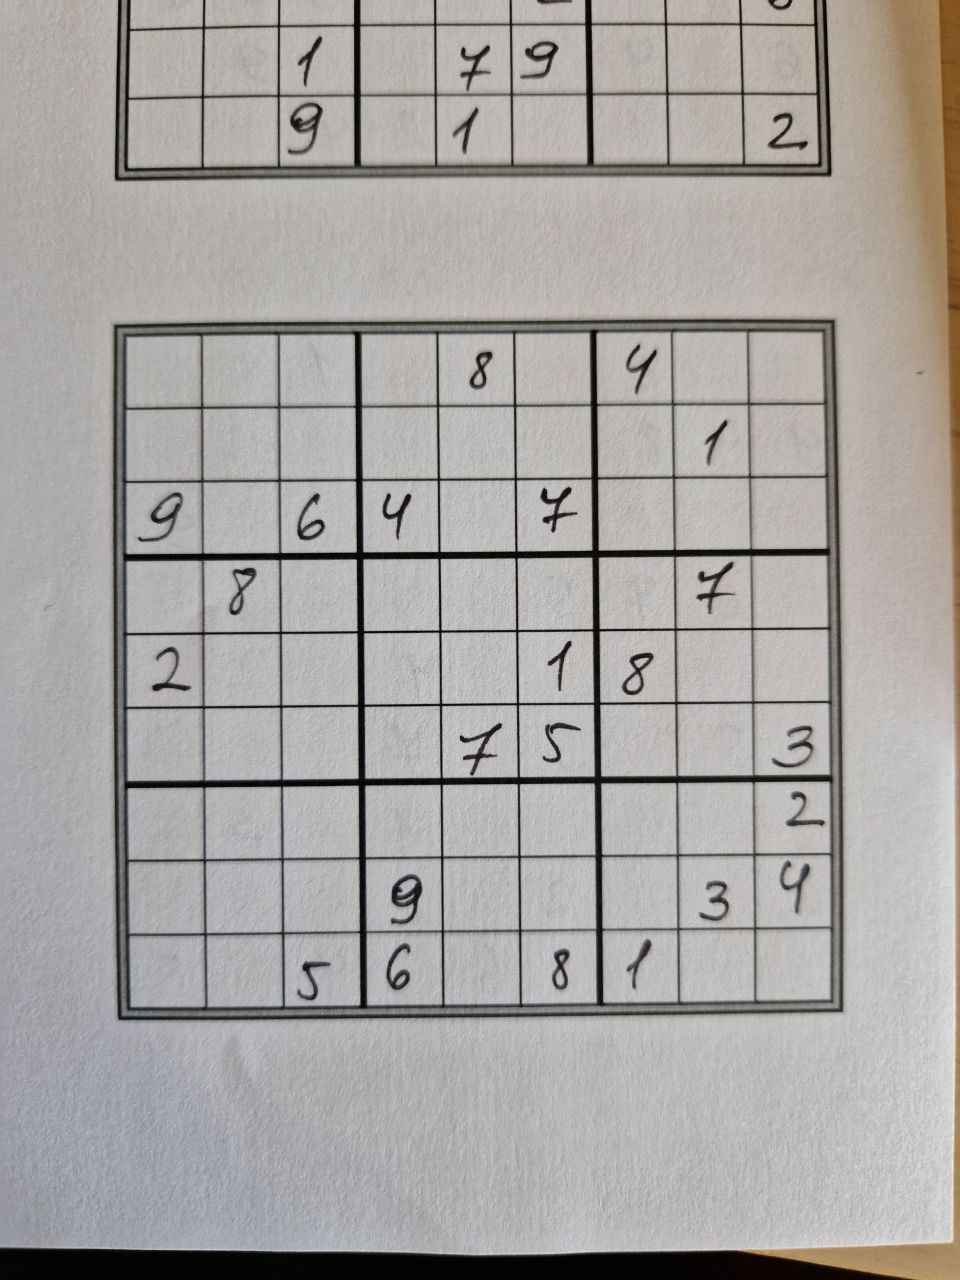 1 7 9
9 1 2
8 4
1
9 6 4 7
8 7
2 1 8
7 5 3
2
9 3 4
5 6 8 1